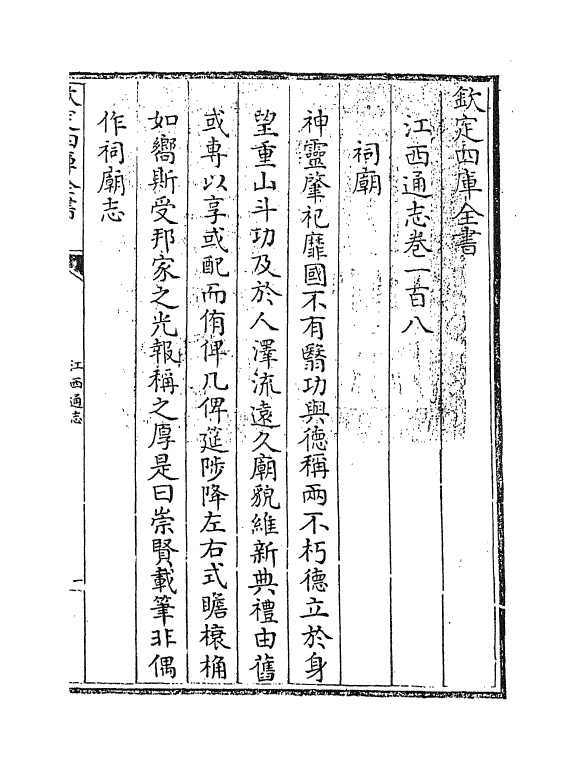 欽定四庫全書
江西通志卷一百八
祠廟
神靈肇祀靡國不有翳功與德稱兩不朽德立於身
望重山斗功及於人澤流遠久廟貌維新典禮由舊
或専以享或配而侑俾几俾筵陟降左右式瞻榱桷
如嚮斯受邦家之光報稱之厚是曰崇賢載筆非偶
作祠廟志
江西通志